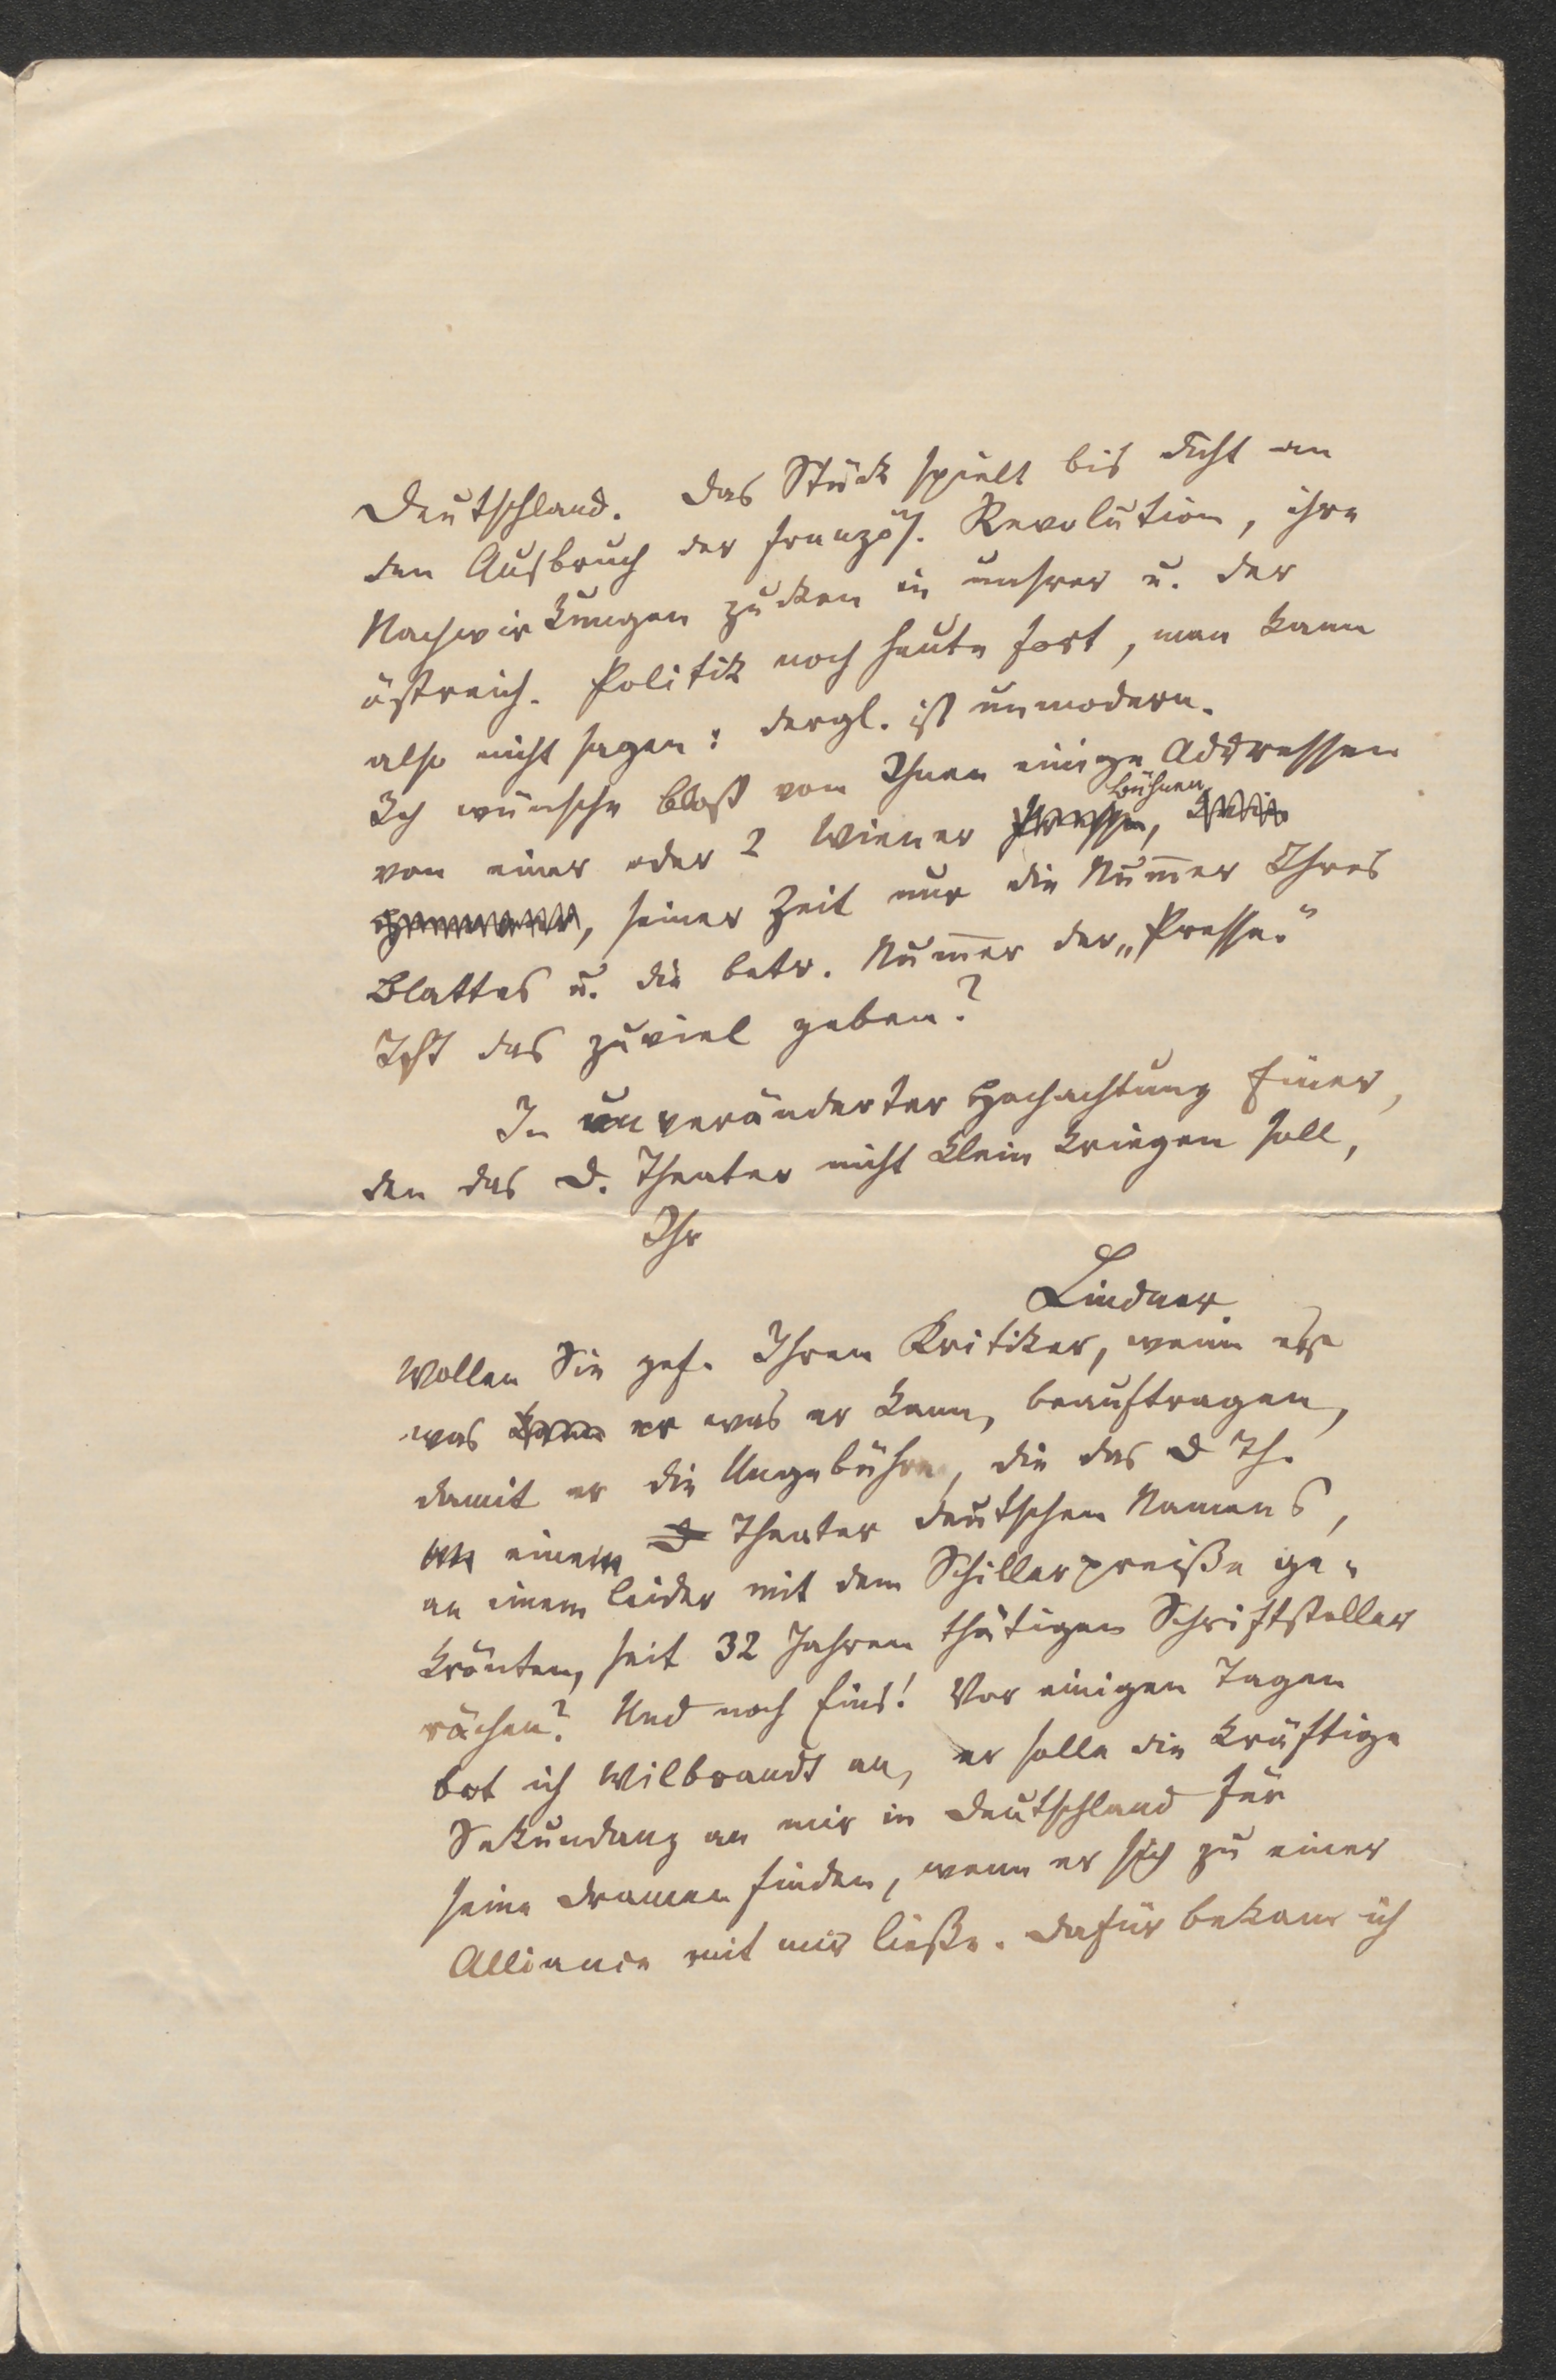 Deutschland. Das Stück spielt bis dicht an
den Ausbruch der französ. Revolution, ihre
Nachwirkungen zucken in unsrer u. der
östreich. Politik noch heute fort, man kann
also nicht sagen: dergl. ist unmodern.
Ich wünsche bloß von Ihnen einige Addressen
Bühnen
von einer oder 2 Wiener Presse,
, seiner Zeit nur die Numer Ihres
Blattes u. die betr. Numer der „Presse."
Ist das zuviel geben?
In unveränderter Hochachtung Einer,
den das D. Theater nicht klein kriegen soll,
Ihr
Lindner.
Wollen Sie gef. Ihren Kritiker, wenn
was kann er was er kann, beauftragen,
damit er die Ungebühren, die das D Th.
an einem D Theater deutschen Namens,
an einem leider mit dem Schillerpreiße ge-
krönten, seit 32 Jahren thätigen Schriftsteller
rächen? Und noch Eins! Vor einigen Tagen
bot ich Wilbrandt an, er solle die kräftige
Sekundanz an mir in Deutschland für
seine Dramen finden, wenn er sich zu einer
Alliance mit mir ließe. Dafür bekam ich